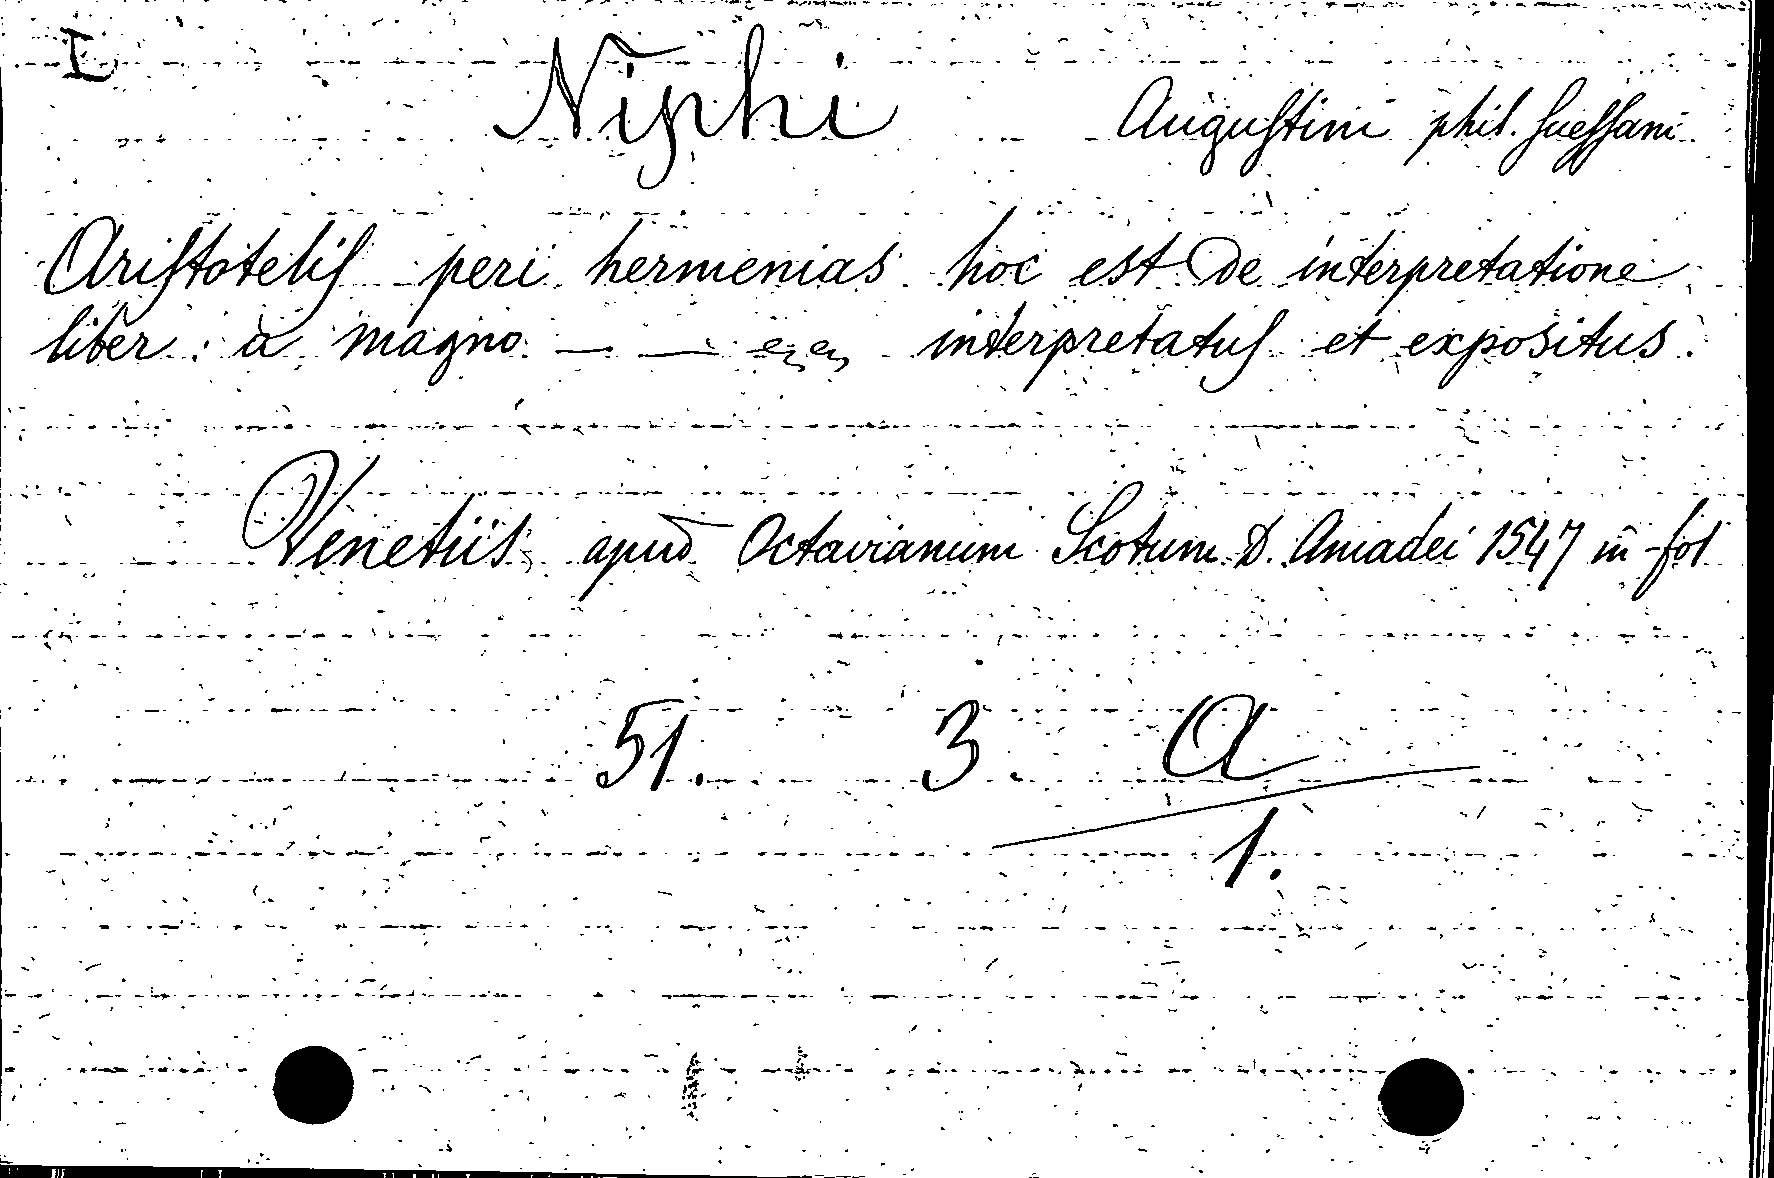 I
Niphi Augustini phil. Suessani
Aristotelis peri hermenias hoc est De interpretatione
liber : a magno — — interpretatus et expositus.
Venetiis apud Octavianum Scotum D. Amadei 1547 in-fol
51. 3. A
1.